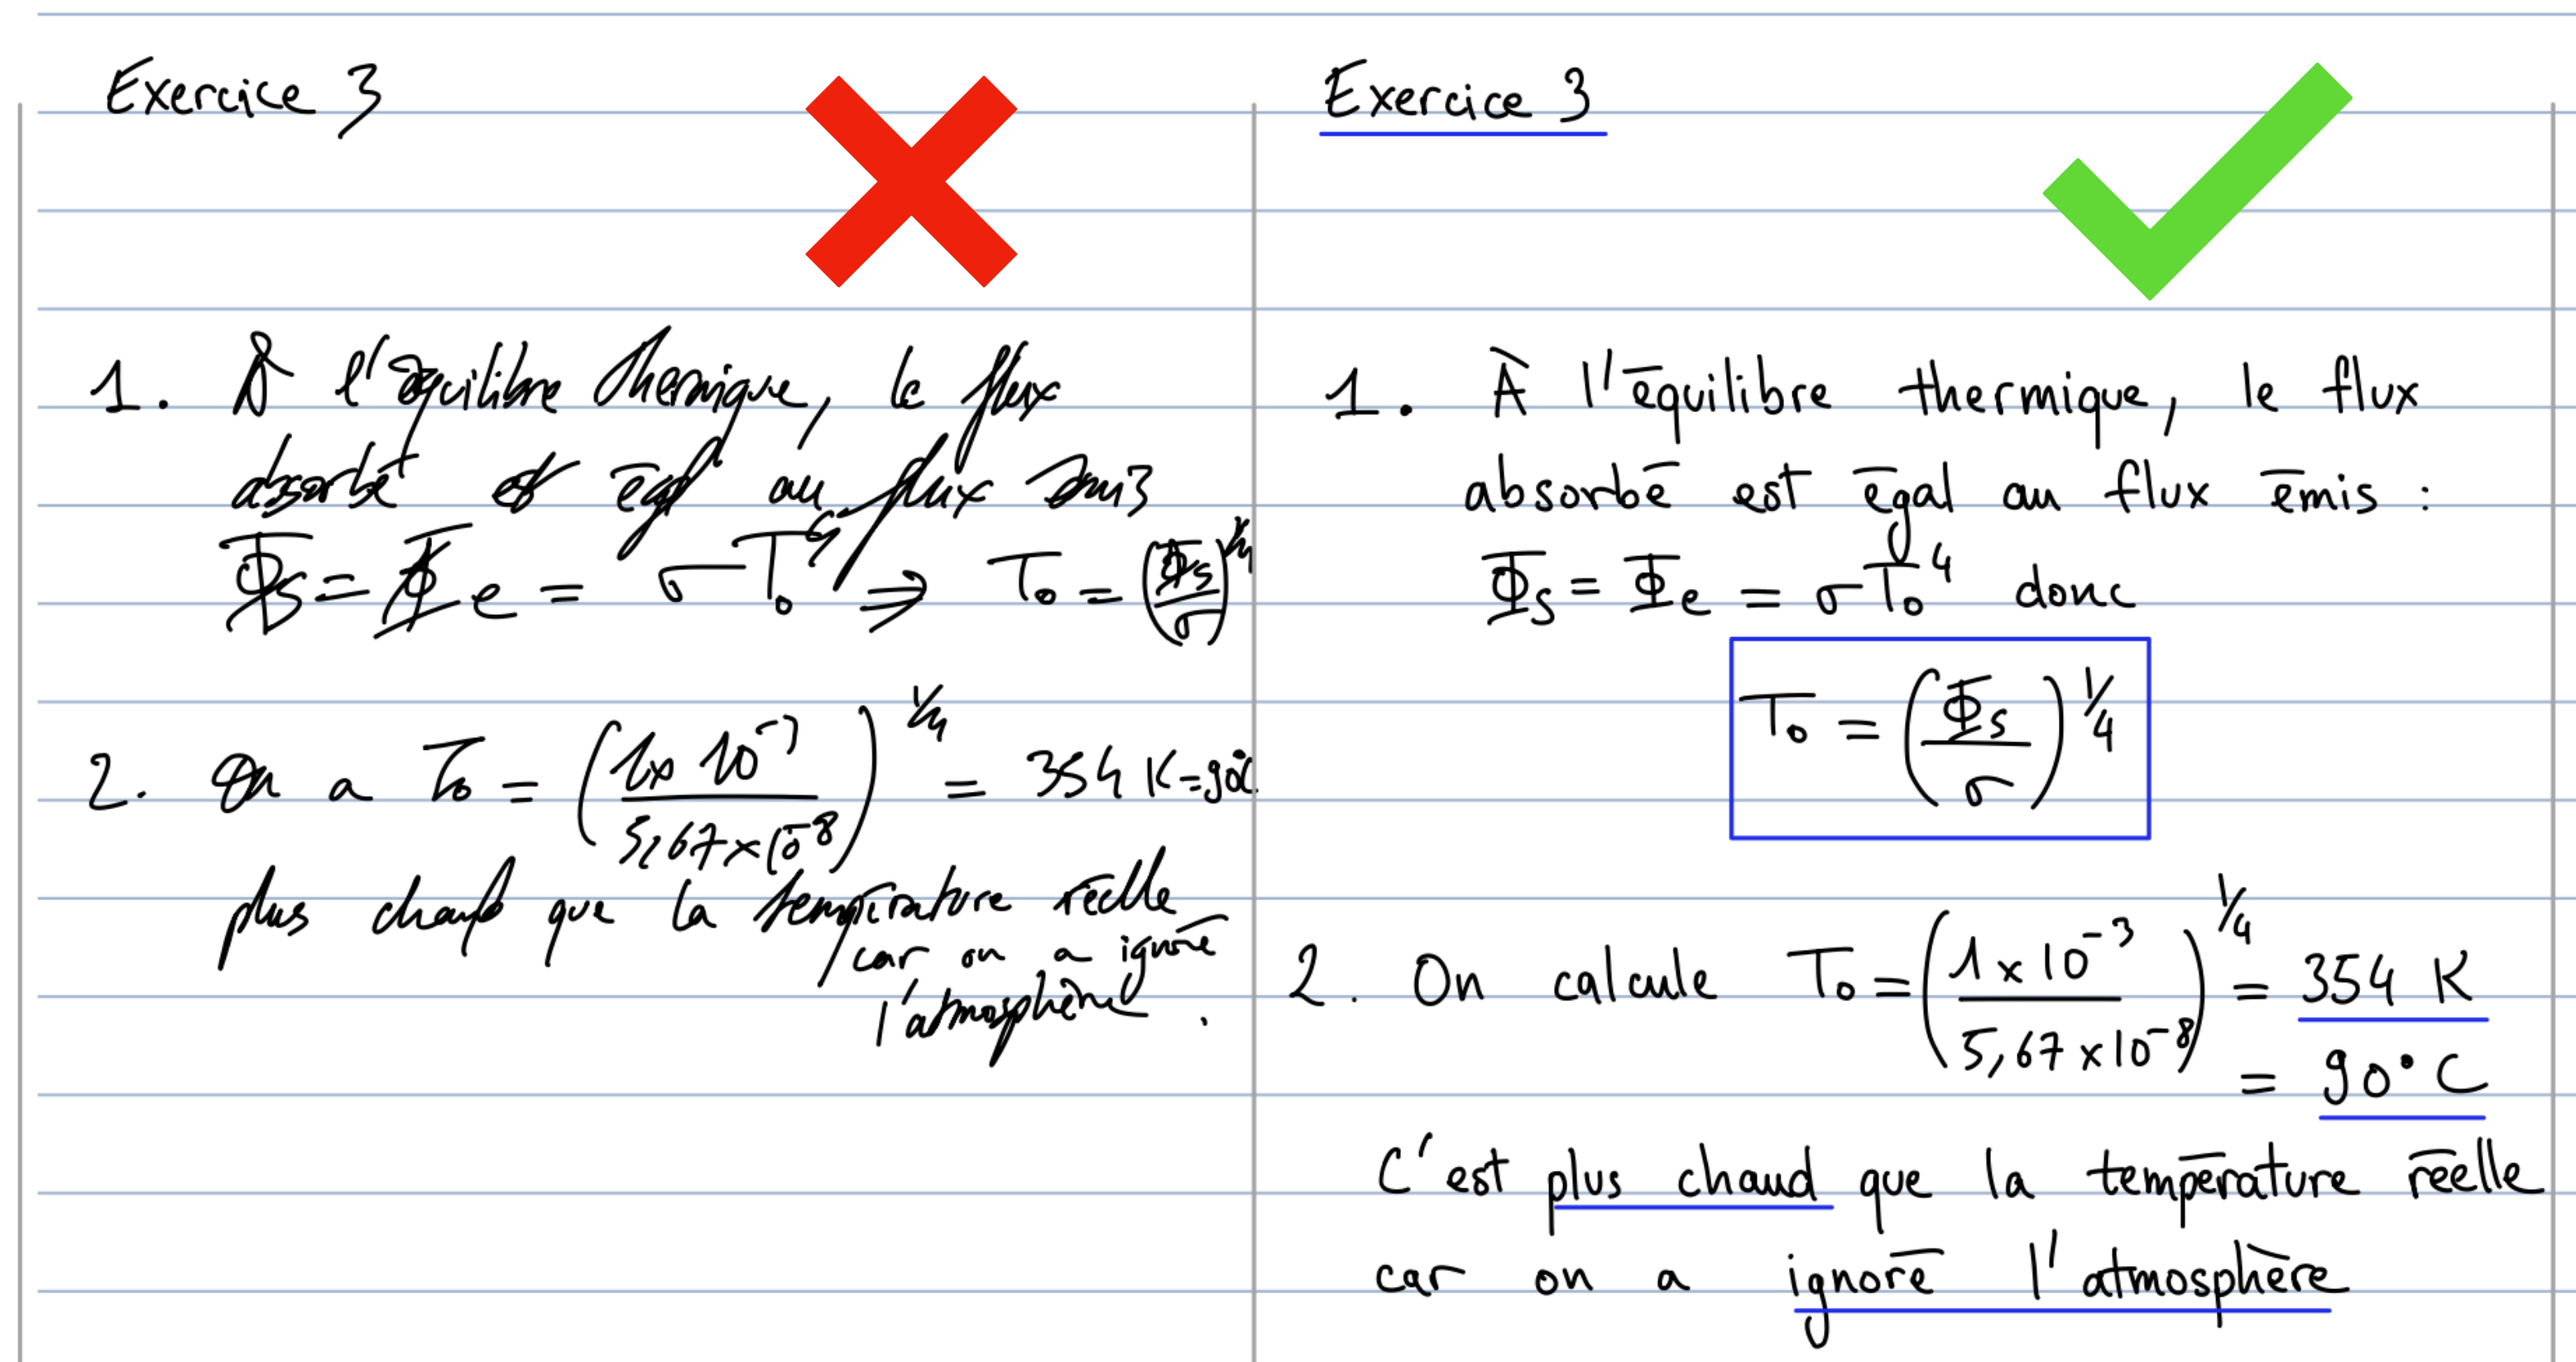 Exercice 3
1. À l'équilibre thermique, le flux
absorbé est égal au flux émis
Φs = Φe = σT₀⁴ ⇒ T₀ = (Φs/σ)^1/4
2. On a T₀ = (1×10⁻³/5,67×10⁻⁸)^1/4 = 354 K = 90°C
plus chaud que la température réelle
car on a ignoré
l'atmosphère.
Exercice 3
1. À l'équilibre thermique, le flux
absorbé est égal au flux émis :
Φs = Φe = σT₀⁴ donc
T₀ = (Φs/σ)^1/4
2. On calcule T₀ = (1×10⁻³/5,67×10⁻⁸)^1/4 = 354 K
= 90°C
C'est plus chaud que la température réelle
car on a ignoré l'atmosphère